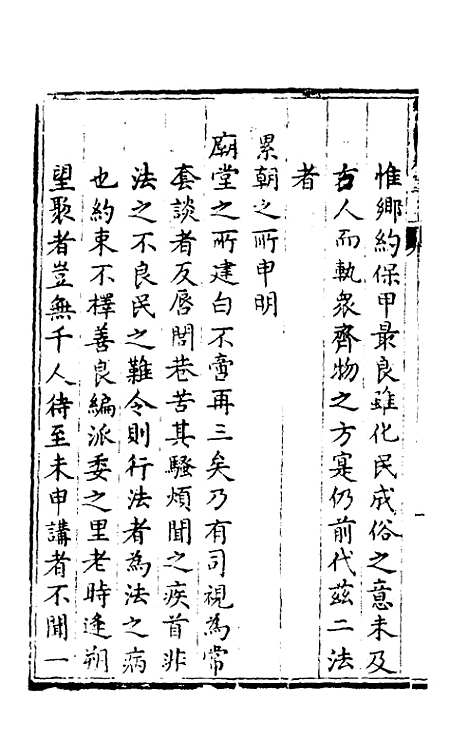 惟鄉約保甲最良雖化民成俗之意未及
古人而軌衆齊物之方寔仍前代茲二法
者
累朝之所申明
廟堂之所建白不啻再三矣乃有司視為常
套談者反唇閭巷苦其騷煩聞之疾首非
法之不良民之難令則行法者為法之病
也約束不擇善良編派委之里老時逢朔
望聚者豈無千人待至未申講者不聞一